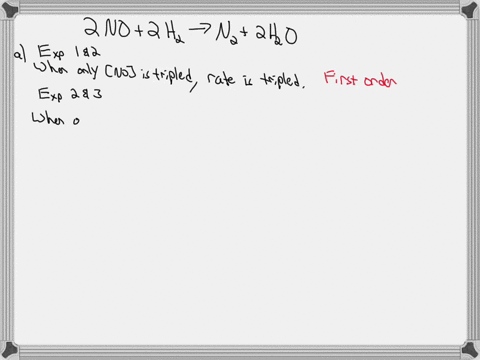 2NO + 2H₂ → N₂ + 2H₂O
a) Exp 1 & 2
When only [NO] is tripled, rate is tripled. First order
Exp 2 & 3
When o